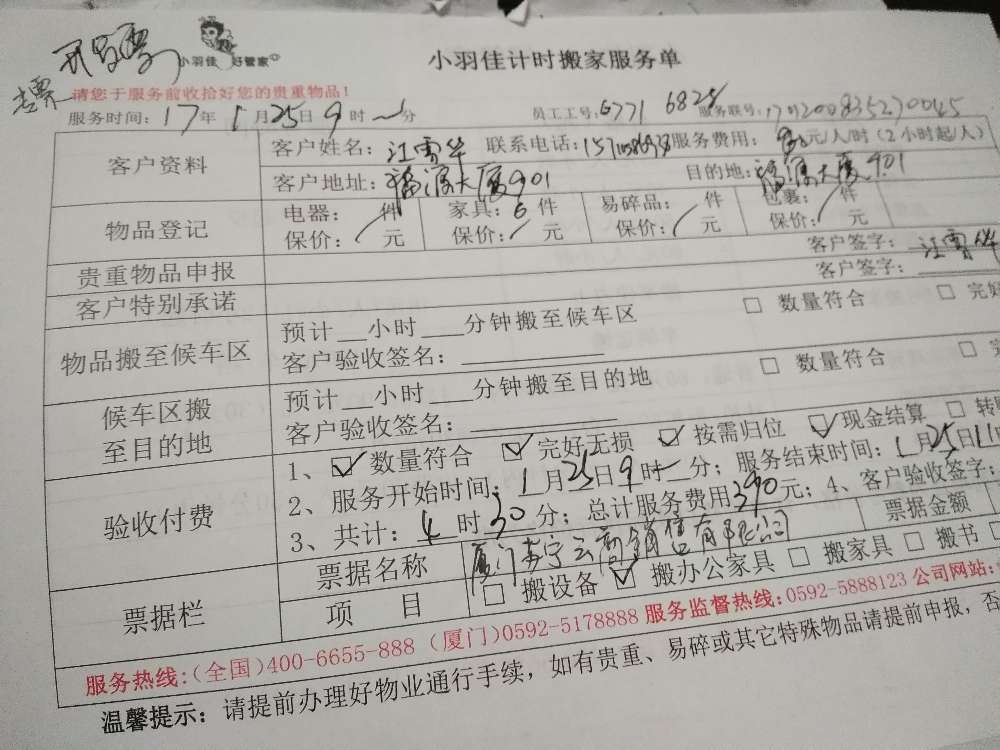 开发票
小羽佳 好管家
小羽佳计时搬家服务单
请您于服务前收拾好您的贵重物品!
服务时间: 17年 1月25日 9时 分 员工工号: 6771 6828 服务联号:
客户资料 客户姓名: 江雪华 联系电话: 服务费用: 元/人/时(2小时起/人)
客户地址: 福源大厦901 目的地: 福源大厦901
物品登记 电器: / 件 家具: 6 件 易碎品: / 件 包裹: / 件
保价: / 元 保价: / 元 保价: / 元 保价: / 元
贵重物品申报 客户签字: 江雪华
客户特别承诺 客户签字:
物品搬至候车区 预计__小时___分钟搬至候车区 □ 数量符合 □ 完好
客户验收签名:
候车区搬至目的地 预计__小时___分钟搬至目的地 □ 数量符合 □
客户验收签名:
验收付费 1、☑ 数量符合 ☑ 完好无损 ☑ 按需归位 ☑ 现金结算 □
2、服务开始时间: 1月25日9时 分; 服务结束时间: 1月25日11时
3、共计: 4时30分; 总计服务费用390元; 4、客户验收签字:
票据栏 票据名称 厦门苏宁云商销售有限公司 票据金额
项 目 □ 搬设备 ☑ 搬办公家具 □ 搬家具 □ 搬书 □
服务热线:(全国)400-6655-888 (厦门)0592-5178888 服务监督热线:0592-5888123 公司网站:
温馨提示: 请提前办理好物业通行手续，如有贵重、易碎或其它特殊物品请提前申报，否